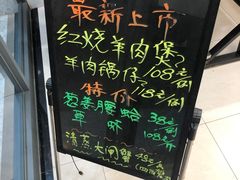 最新上市
红烧羊肉煲
羊肉锅仔 108元/例
118元/例
特价
葱姜腰蛤 38元/例
草虾 108元/斤
清蒸大闸蟹